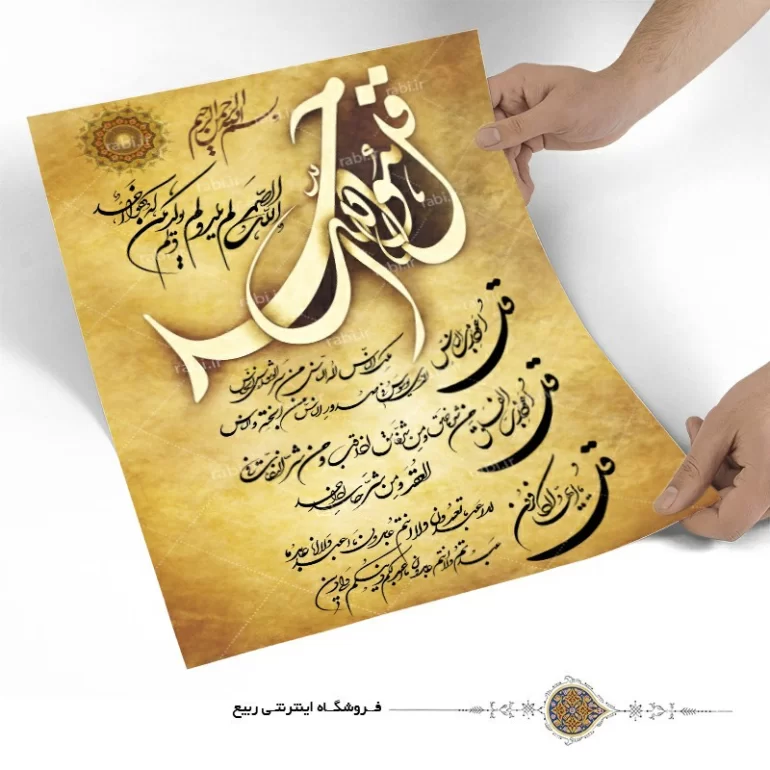 بسم الله الرحمن الرحیم
قل هو الله احد
الله الصمد لم یلد و لم یولد و لم یکن
له کفوا احد
قل
اعوذ برب الناس
ملک الناس اله الناس من شر الوسواس الخناس
الذی یوسوس فی صدور الناس من الجنة و الناس
قل
اعوذ برب الفلق
من شر ما خلق و من شر غاسق اذا وقب و من شر النفاثات فی
العقد و من شر حاسد اذا حسد
قل
یا ایها الکافرون
لا اعبد ما تعبدون و لا انتم عابدون ما اعبد و لا انا عابد ما
عبدتم و لا انتم عابدون ما اعبد لکم دینکم و لی دین
rabi.ir
فروشگاه اینترنتی ربیع